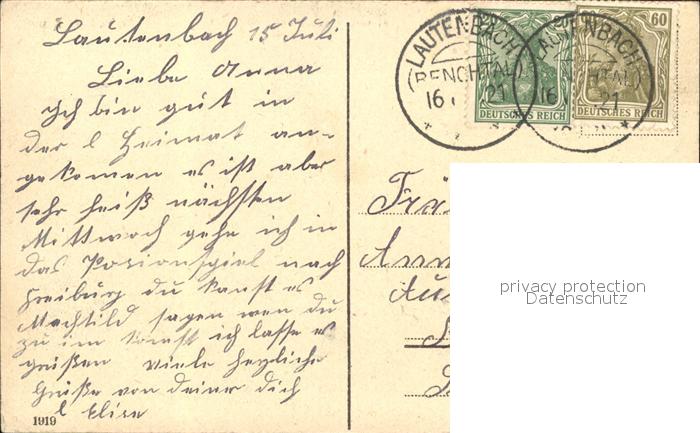 Lautenbach 15 Juli
Liebe Anna
Ich bin gut in
der l Heimat an-
gekomen es ist aber
sehr heiß nächsten
Mittwoch gehe ich in
das Pasionspiel nach
Freiburg du kanst es
Machtild sagen wen du
zu im komst ich lasse es
grüßen viele herzliche
Grüße von deiner dich
l Elise
1919
LAUTENBACH
(RENCHTAL)
16 21
DEUTSCHES REICH
LAUTENBACH
16 21
60
DEUTSCHES REICH
privacy protection
Datenschutz